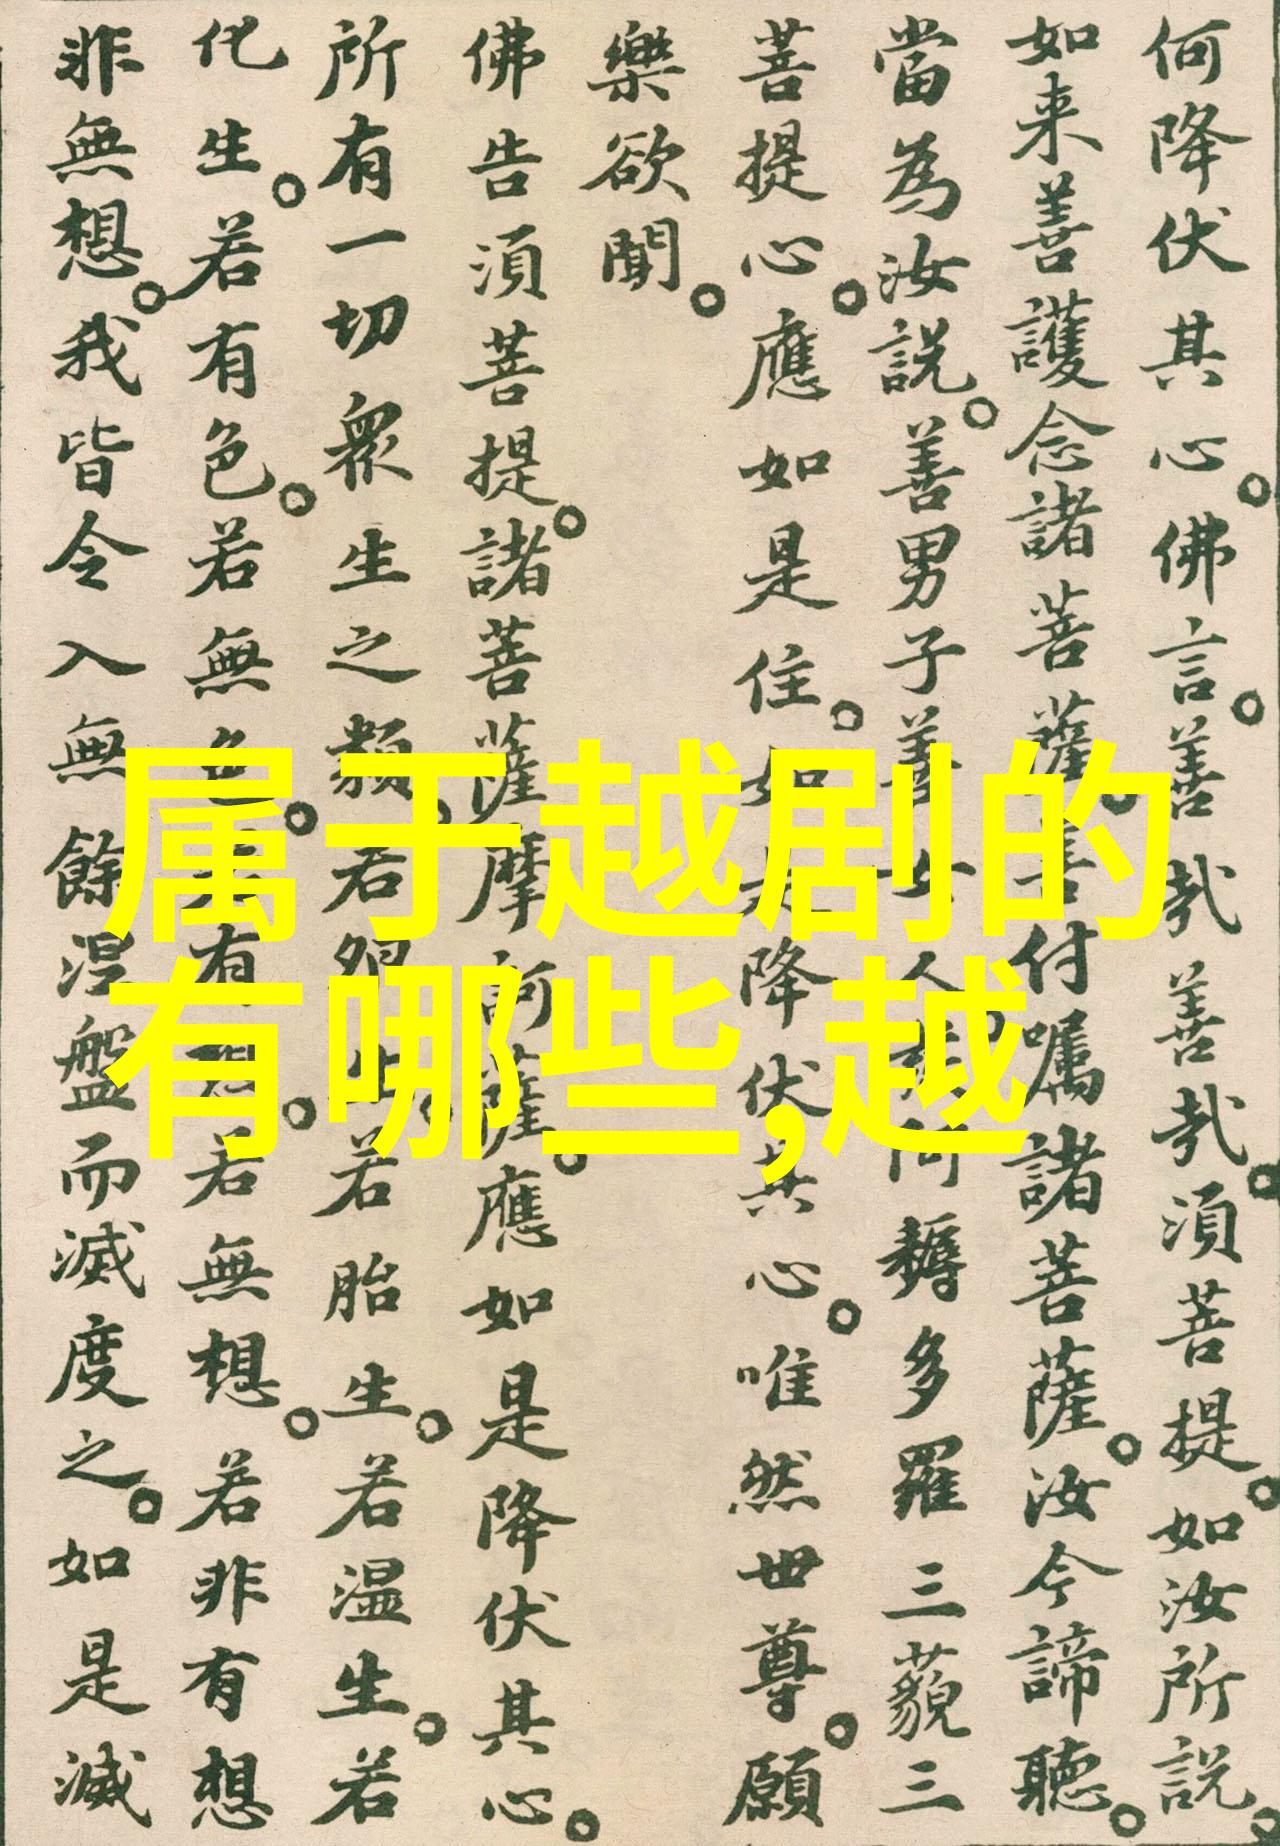 何降伏其心佛言善哉善哉須菩提如汝所說
如来善護念諸菩薩善付嘱諸菩薩汝今諦聽
當為汝說善男子善女人發阿耨多羅三藐三
菩提心應如是住如是降伏其心唯然世尊願
樂欲聞
佛告須菩提諸菩薩摩訶薩應如是降伏其心
所有一切衆生之類若卵生若胎生若温生若
化生若有色若無色若有想若無想若非有想
非無想我皆令入無餘涅盤而滅度之如是滅
属于越剧的
有哪些,越